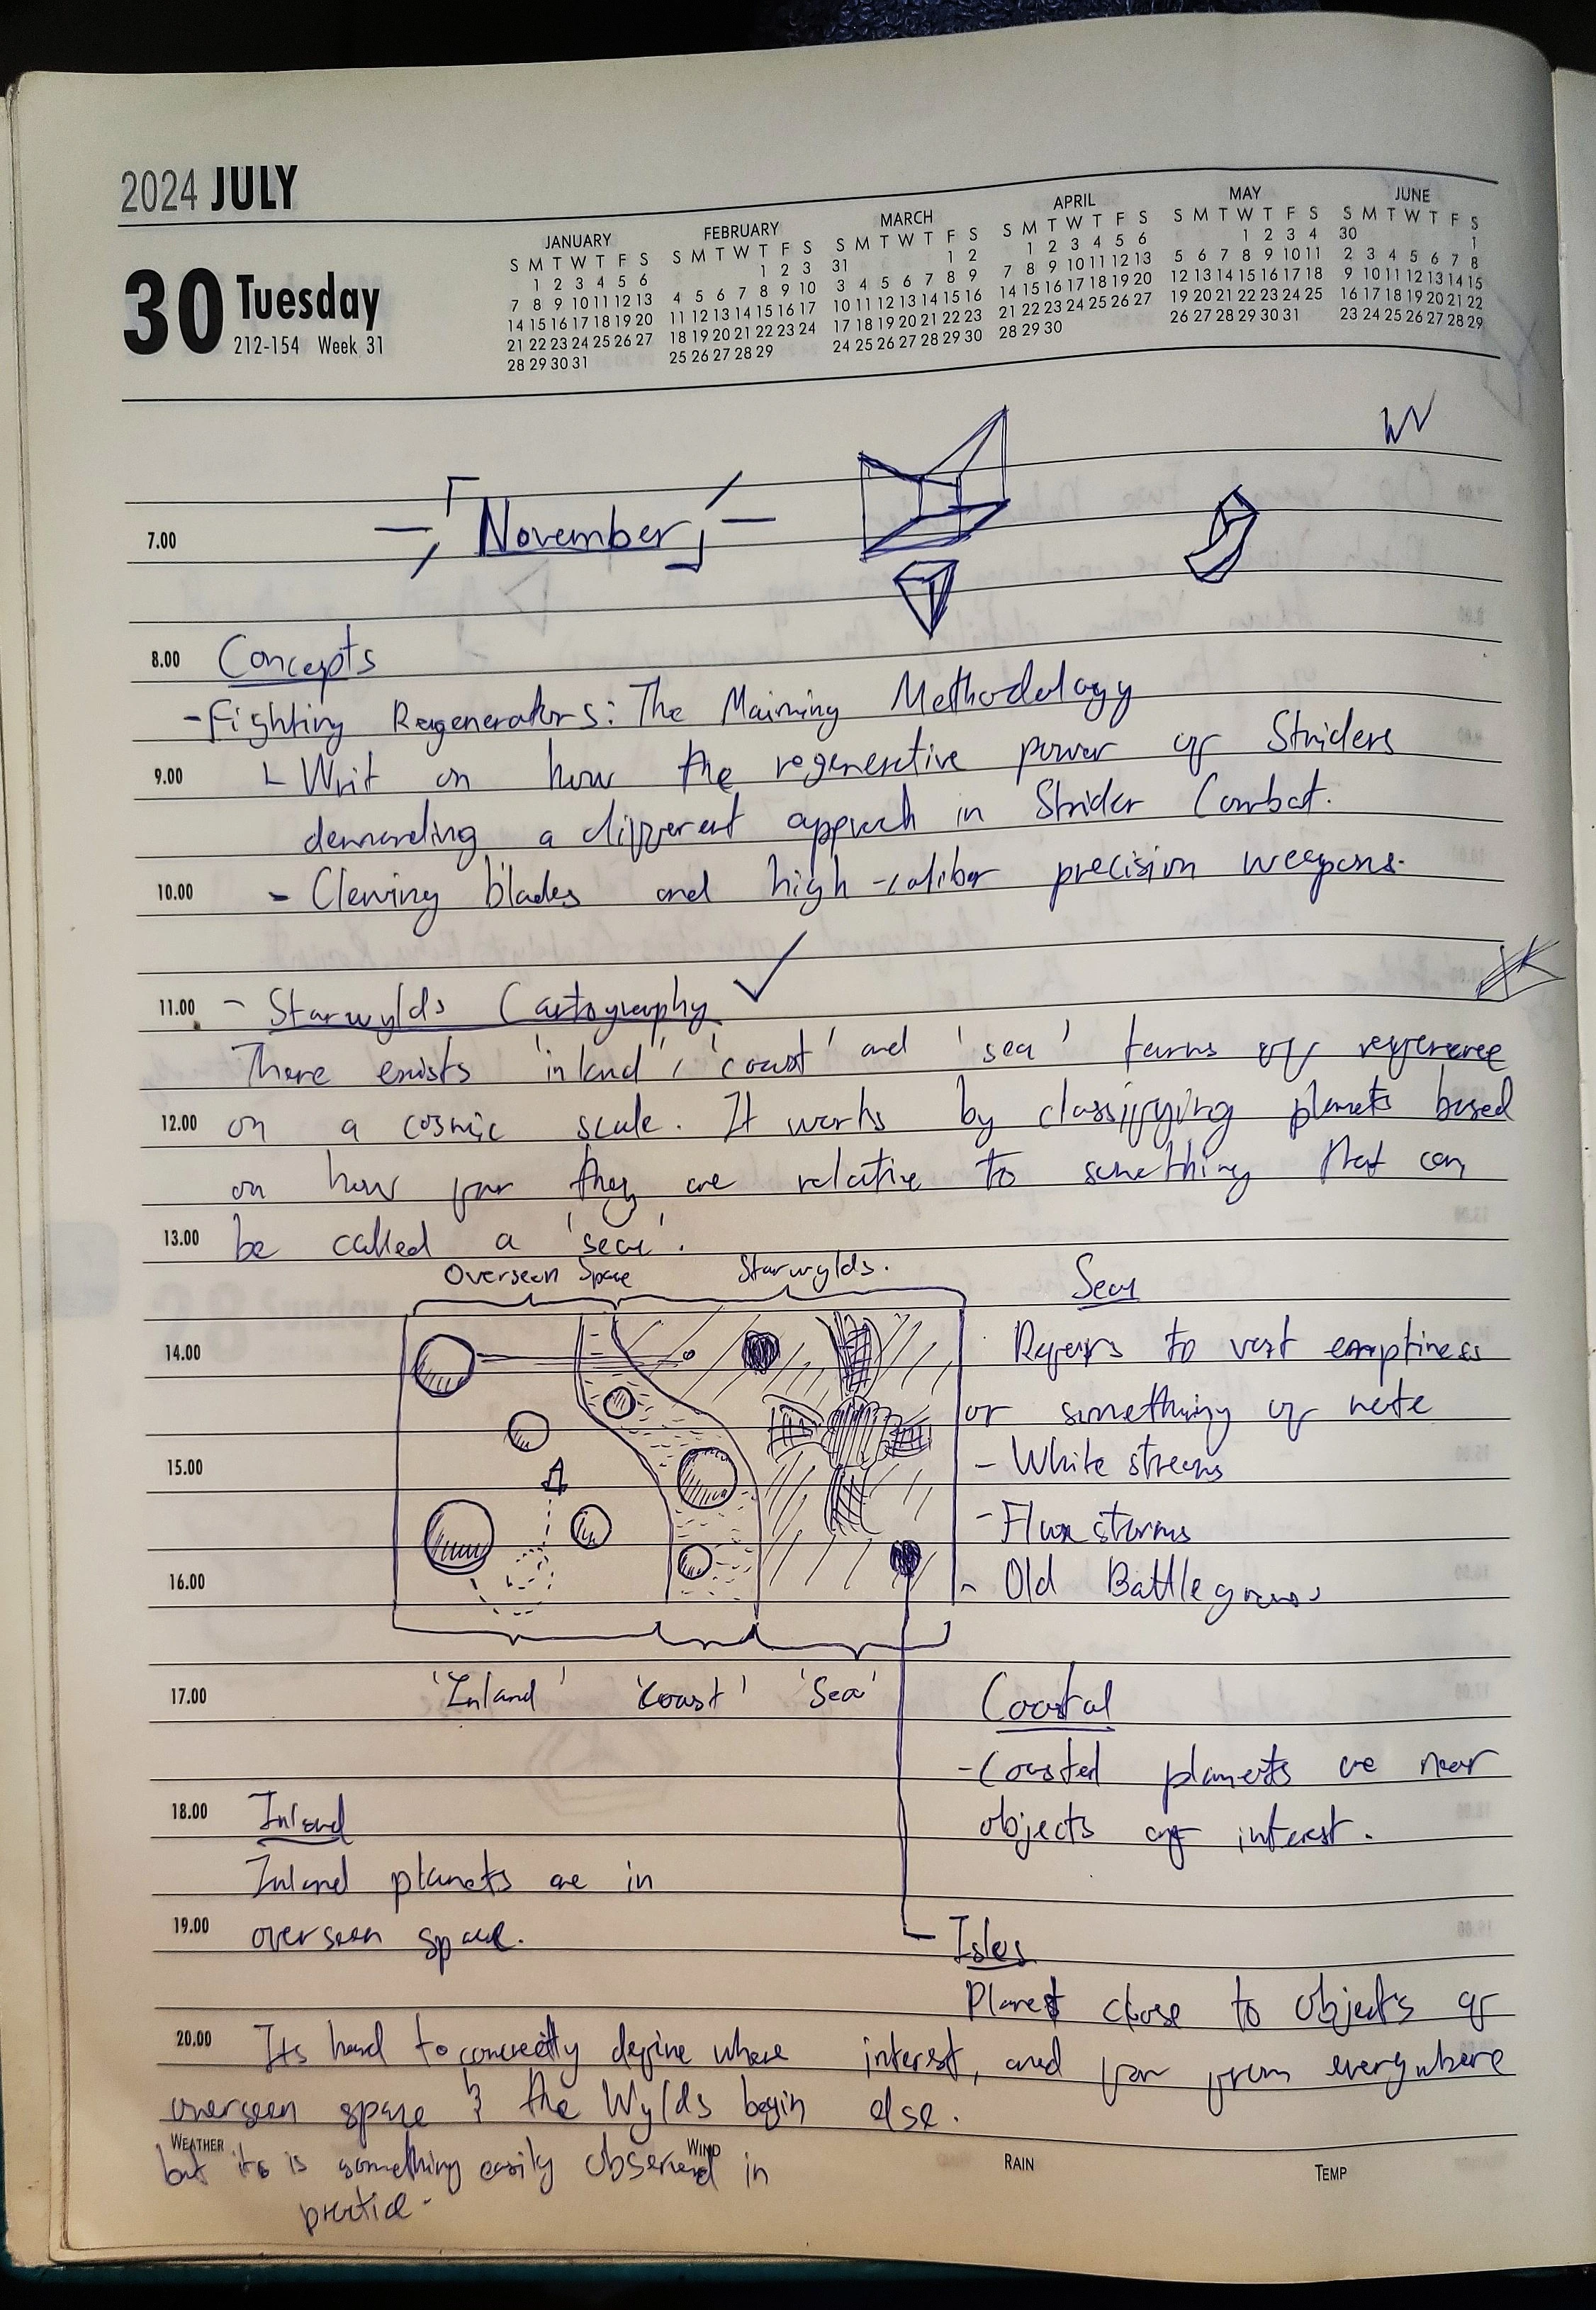 2024 JULY
30 Tuesday
212-154 Week 31
JANUARY
S M T W T F S
1 2 3 4 5 6
7 8 9 10 11 12 13
14 15 16 17 18 19 20
21 22 23 24 25 26 27
28 29 30 31
FEBRUARY
S M T W T F S
1 2 3
4 5 6 7 8 9 10
11 12 13 14 15 16 17
18 19 20 21 22 23 24
25 26 27 28 29
MARCH
S M T W T F S
31 1 2
3 4 5 6 7 8 9
10 11 12 13 14 15 16
17 18 19 20 21 22 23
24 25 26 27 28 29 30
APRIL
S M T W T F S
1 2 3 4 5 6
7 8 9 10 11 12 13
14 15 16 17 18 19 20
21 22 23 24 25 26 27
28 29 30
MAY
S M T W T F S
1 2 3 4
5 6 7 8 9 10 11
12 13 14 15 16 17 18
19 20 21 22 23 24 25
26 27 28 29 30 31
JUNE
S M T W T F S
30 1
2 3 4 5 6 7 8
9 10 11 12 13 14 15
16 17 18 19 20 21 22
23 24 25 26 27 28 29
7.00 「November」
8.00 Concepts
- Fighting Regenerators: The Maiming Methodology
9.00 Writ on how the regenerative power of Striders
demanding a different approch in Strider Combat.
10.00 - Cleaving blades and high-caliber precision weapons.
11.00 - Starwylds Cartography
There exists 'inland', 'coast' and 'sea' terms of reference
12.00 on a cosmic scale. It works by classifying planets based
on how far they are relative to something that can
13.00 be called a 'sea'.
Overseen Space Starwylds.
Sea
14.00 Refers to vast emptiness
or something of note
15.00 - White streams
- Flux storms
16.00 - Old Battlegrounds
17.00 'Inland' 'Coast' 'Sea'
Coastal
- Coastal planets are near
objects of interest.
18.00 Inland
Inland planets are in
19.00 overseen space.
Isles
Planet close to objects of
interest, and far from everywhere
else.
20.00 Its hard to concretly define where
overseen space & the Wylds begin
WEATHER WIND RAIN TEMP
but its is something easily observed in
practice.